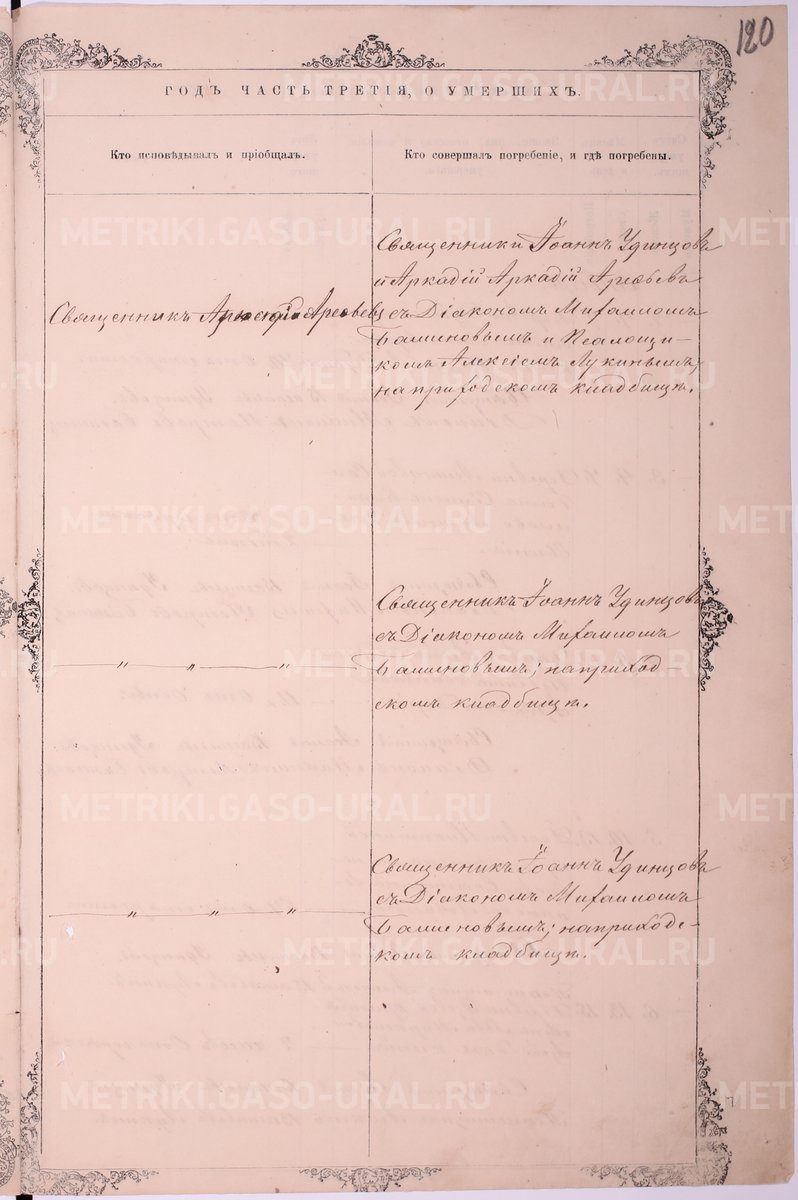 120
ГОДЪ ЧАСТЬ ТРЕТІЯ, О УМЕРШИХЪ.
Кто исповѣдывалъ и пріобщалъ.
Кто совершалъ погребеніе, и гдѣ погребены.
Священникъ Аркадій Арефьевъ
Священники Іоаннъ Удинцовъ
и Аркадій Аркадій Арефьевъ
съ Діакономъ Михаиломъ
Башиновымъ и Псаломщи-
комъ Алексіемъ Лукинымъ;
на приходскомъ кладбищѣ.
Священникъ Іоаннъ Удинцовъ
съ Діакономъ Михаиломъ
Башиновымъ; на приход
скомъ кладбищѣ.
Священникъ Іоаннъ Удинцовъ
съ Діакономъ Михаиломъ
Башиновымъ; на приходс-
комъ кладбищѣ.
METRIKI.GASO-URAL.RU